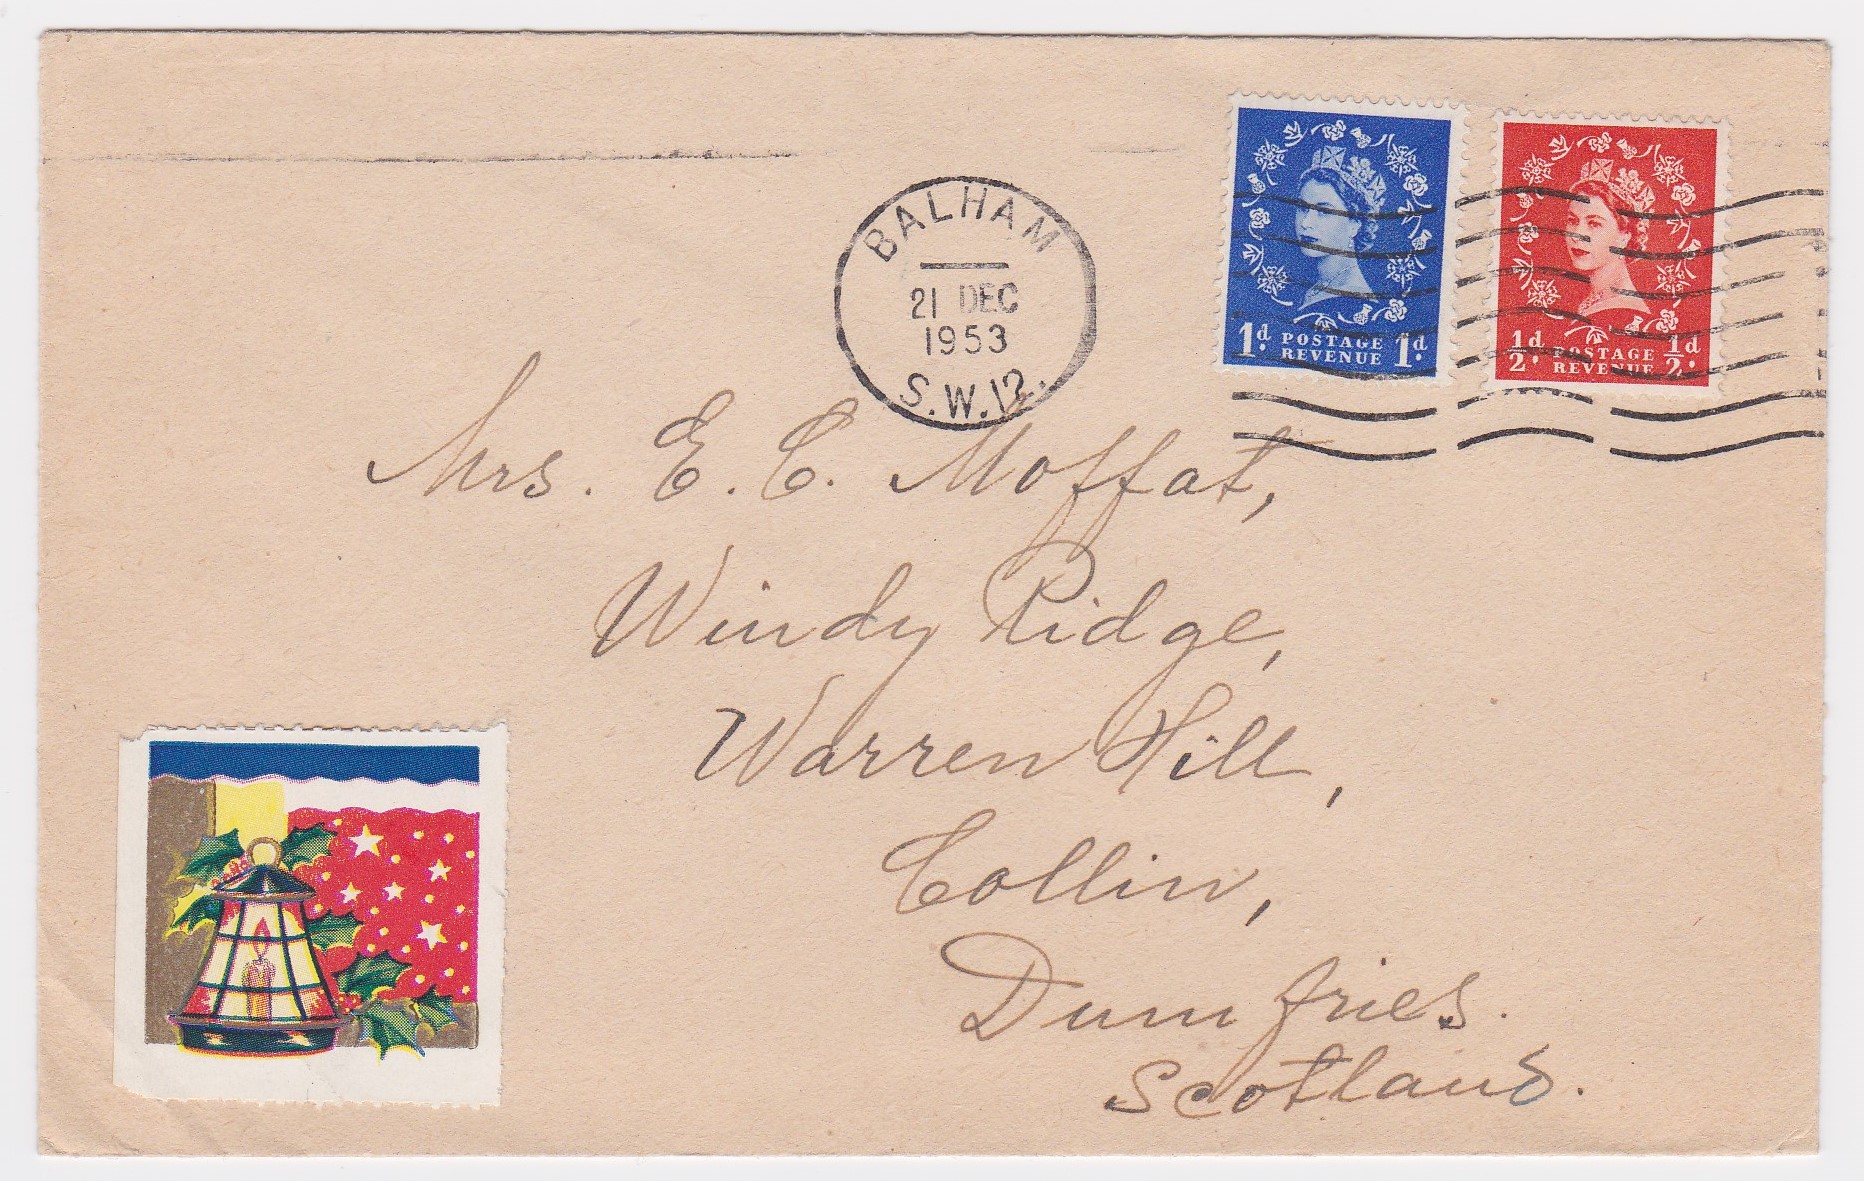 BALHAM
21 DEC
1953
S.W.12.
1d. POSTAGE REVENUE 1d.
½d. POSTAGE REVENUE ½d.
Mrs. E. C. Moffat,
Windy Ridge,
Warren Hill,
Collin,
Dumfries.
Scotland.